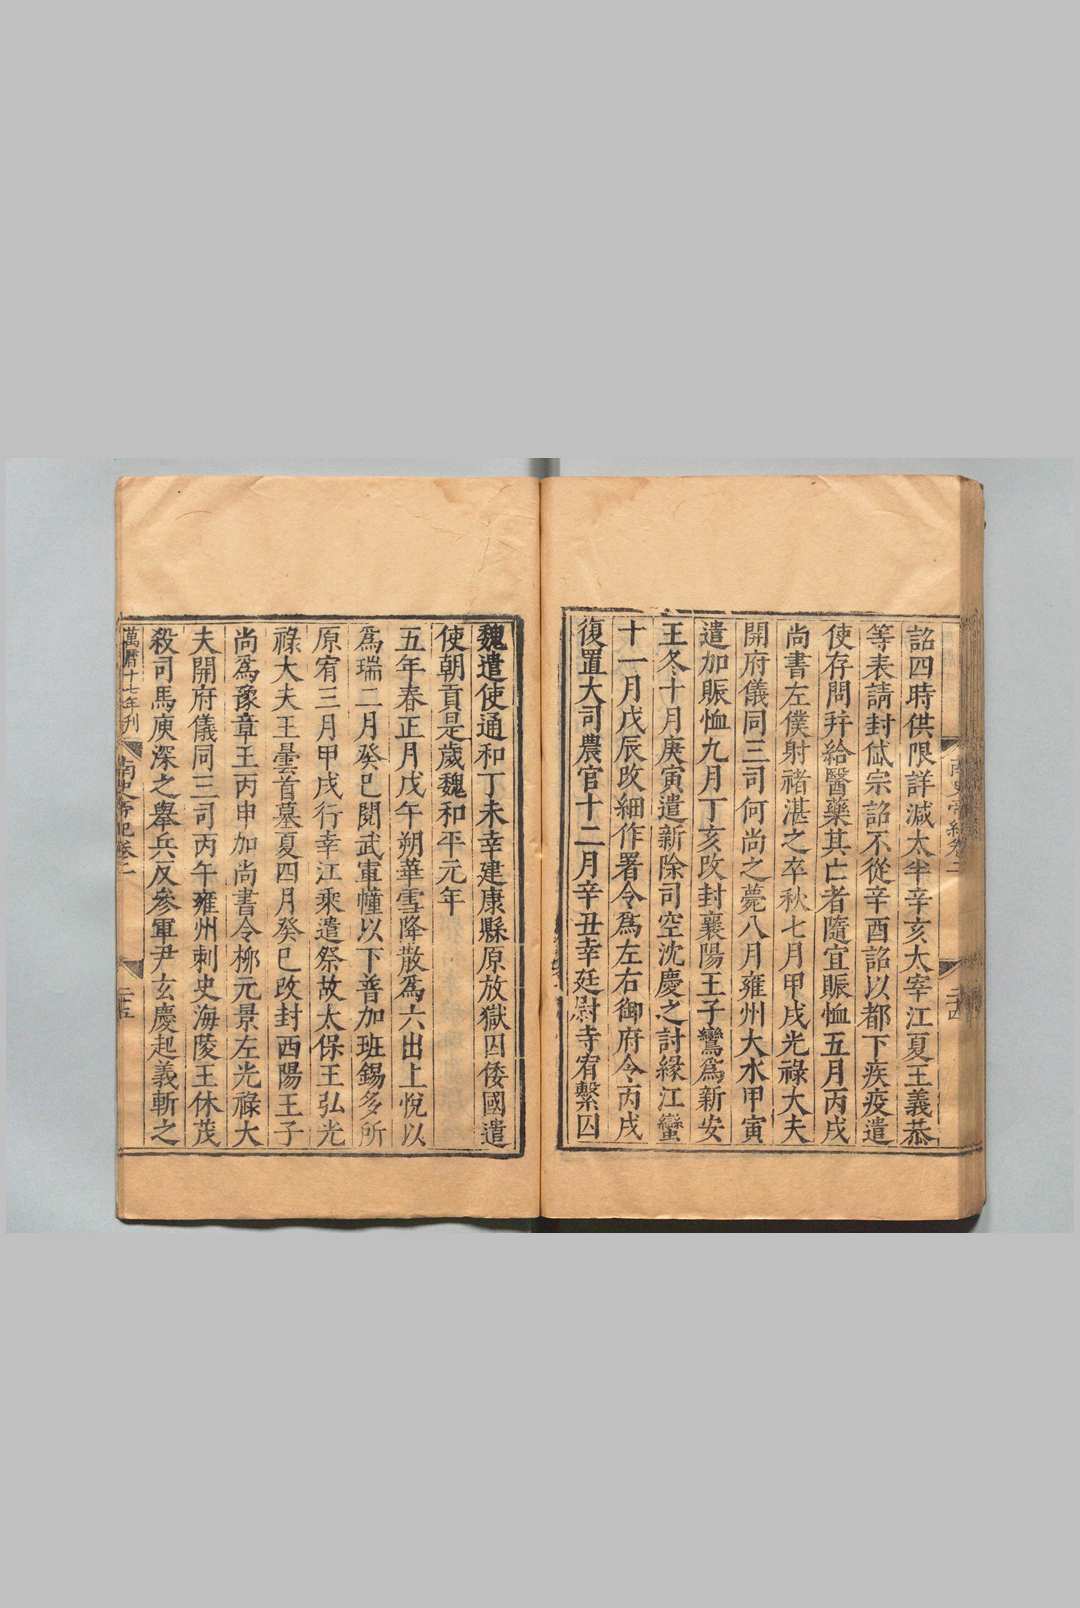 詔四時供限詳減太半辛亥太宰江夏王義恭
等表請封岱宗詔不從辛酉詔以都下疾疫遣
使存問幷給醫藥其亡者隨宜賑恤五月丙戌
尚書左僕射褚湛之卒秋七月甲戌光祿大夫
開府儀同三司何尚之薨八月雍州大水甲寅
遣加賑恤九月丁亥改封襄陽王子鸞爲新安
王冬十月庚寅遣新除司空沈慶之討緣江蠻
十一月戊辰改細作署令爲左右御府令丙戌
復置大司農官十二月辛丑幸廷尉寺宥繫囚
魏遣使通和丁未幸建康縣原放獄囚倭國遣
使朝貢是歲魏和平元年
五年春正月戊午朔華雪降散爲六出上悅以
爲瑞二月癸巳閱武軍幢以下普加班錫多所
原宥三月甲戌行幸江乘遣祭故太保王弘光
祿大夫王曇首墓夏四月癸巳改封西陽王子
尚爲豫章王丙申加尚書令柳元景左光祿大
夫開府儀同三司丙午雍州刺史海陵王休茂
殺司馬庾深之舉兵反參軍尹玄慶起義斬之
萬曆十七年刊
南史帝紀卷二
二十五